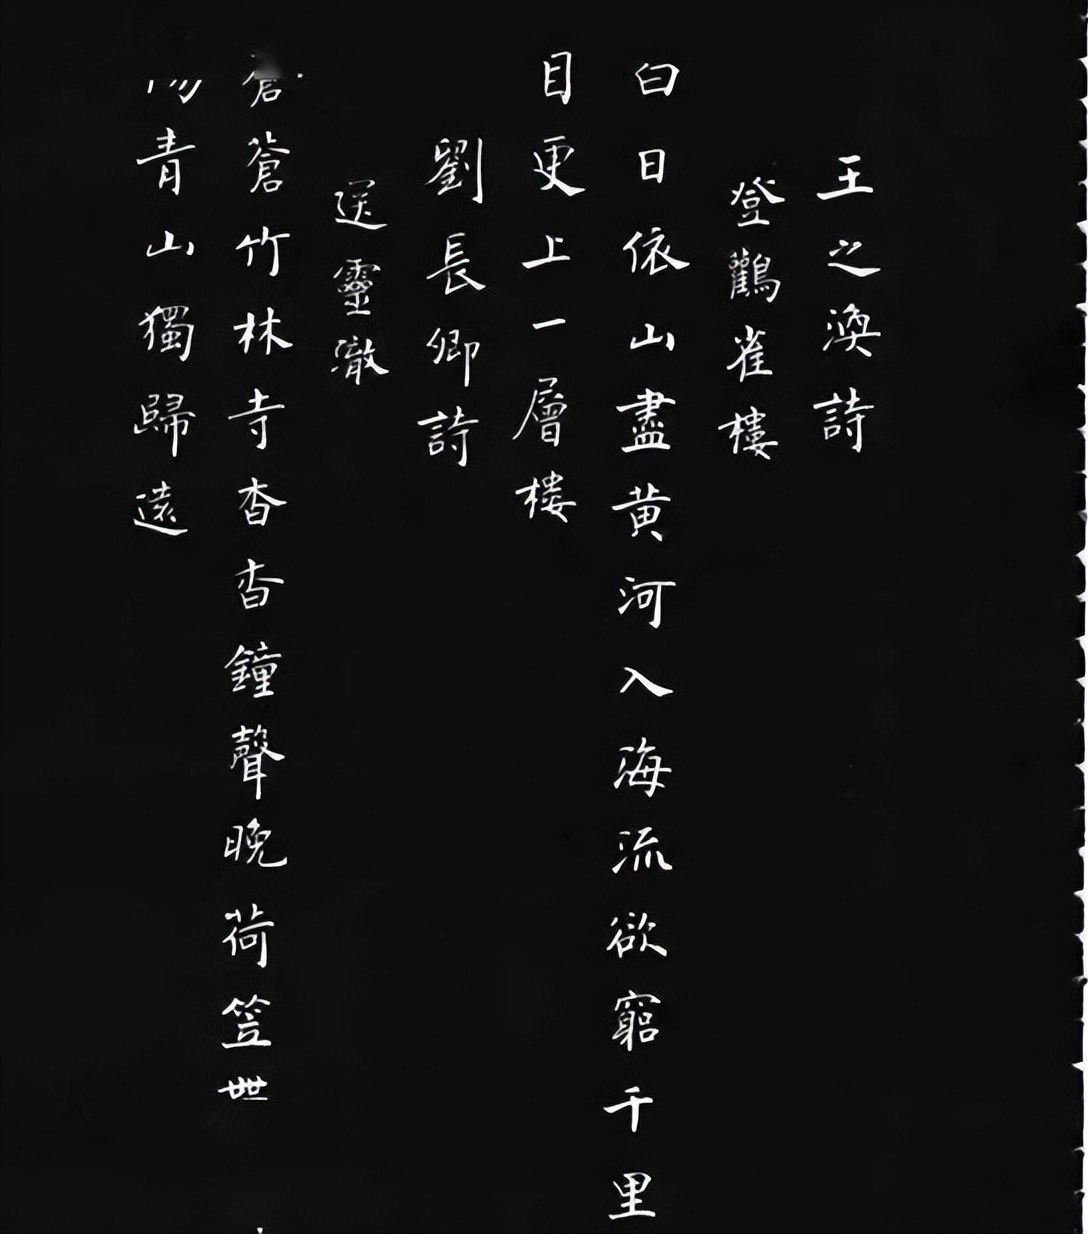 王之渙詩
登鸛雀樓
白日依山盡黄河入海流欲窮千里
目更上一層楼
劉長卿詩
送靈澈
蒼蒼竹林寺杳杳鐘聲晚荷笠
青山獨歸遠